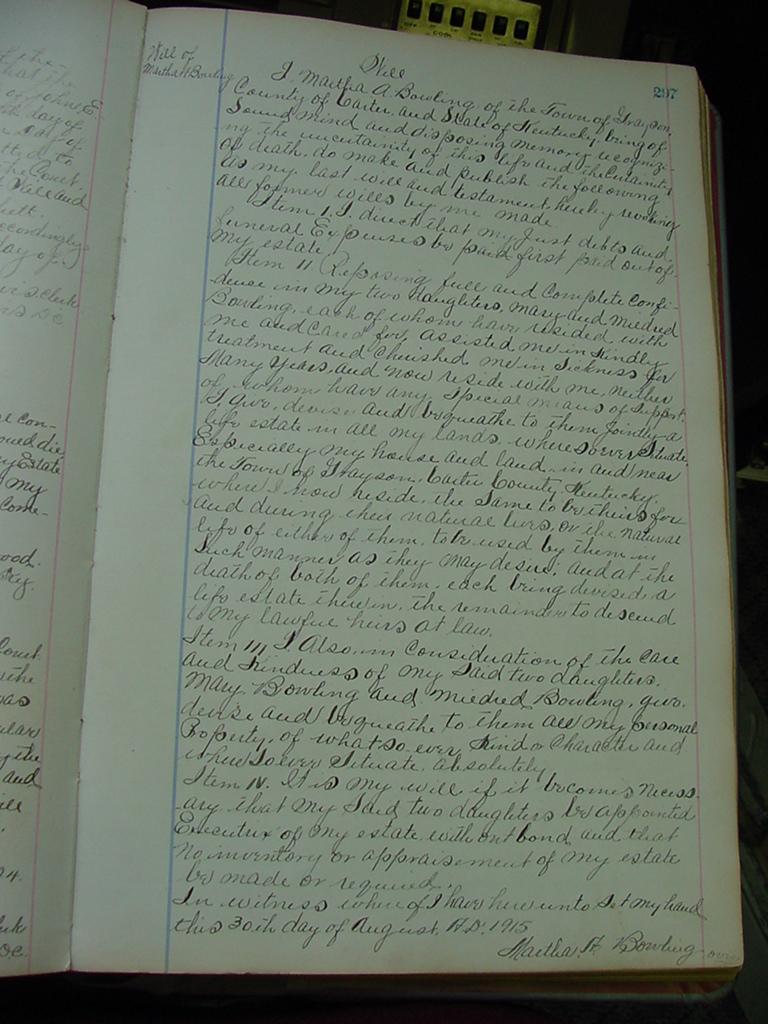 297
Will of
Martha A Bowling
Will
I, Martha A. Bowling, of the Town of Grayson,
County of Carter, and State of Kentucky, being of
Sound mind and disposing memory, recogniz-
ing the uncertainty of this life and the certainty
of death, do make and publish the following
as my last will and testament, hereby revoking
all former wills by me made.
Item 1. I, direct that my Just debts and
funeral Expenses be paid first paid out of
my estate.
Item 11. Reposing full and Complete Confi-
dence in my two daughters, Mary and Mildred
Bowling, each of whom have resided with
me and Cared for, assisted me in Kindly
treatment and Cherished me in Sickness for
Many years, and now reside with me, neither
of whom have any Special means of Support.
I, give, devise and bequeathe to them Jointly a
life estate in all my lands, wheresoever Situate
Especially my house and land in and near
the Town of Grayson, Carter County, Kentucky,
where I now reside, the Same to be theirs for
and during their natural lives, or the natural
life of either of them, to be used by them in
Such manner as they may desire, and at the
death of both of them, each being devised a
life estate therein, the remainder to descend
to my lawful heirs at law.
Item 111. I Also, in Consideration of the Care
and Kindness of my Said two daughters,
Mary Bowling and Mildred Bowling, give,
devise and bequeathe to them all my personal
Property, of what-so-ever, Kind or Character and
wheresoever Situate, absolutely.
Item 1V. It is my will if it becomes necess-
ary that my Said two daughters be appointed
Executrix of my estate without bond, and that
no inventory or appraisement of my estate
be made or required.
In witness whereof I have here unto Set my hand
this 30th day of August, A.D. 1915
Martha. A Bowling
over
day of
Court.
Will and
accordingly
day of
Clerk
D.C.
my Estate
my
Come-
Court
the
was
the
and